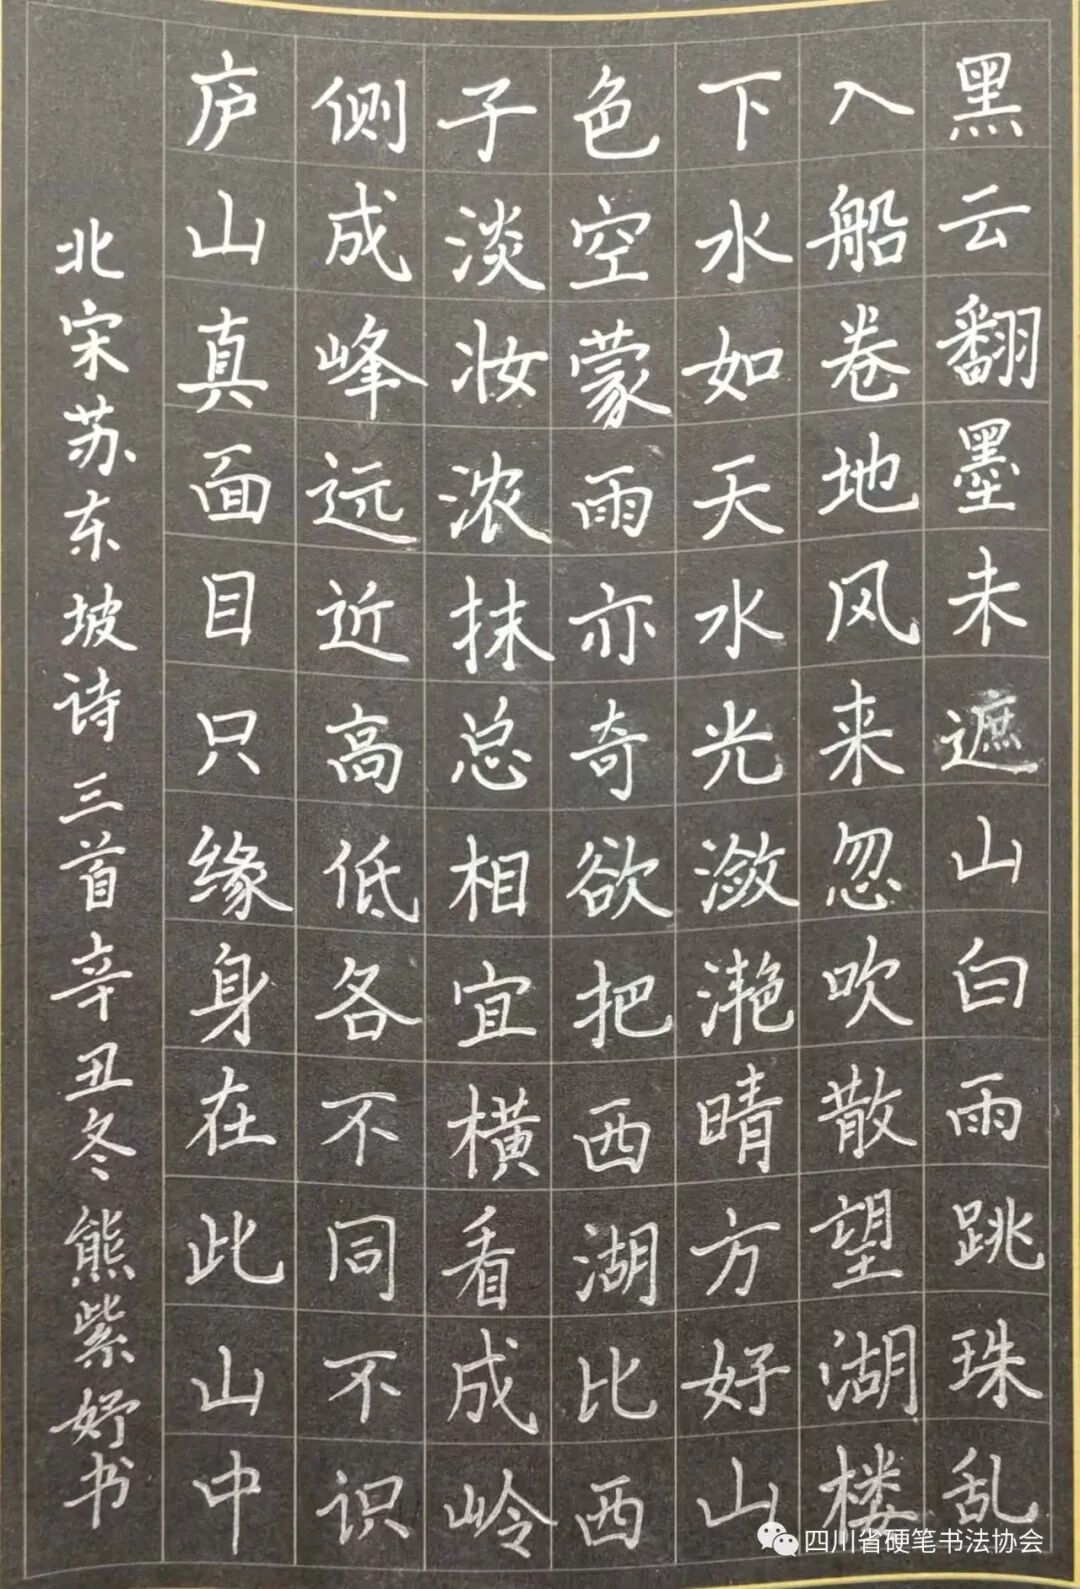 黑云翻墨未遮山白雨跳珠乱
入船卷地风来忽吹散望湖楼
下水如天水光潋滟晴方好山
色空蒙雨亦奇欲把西湖比西
子淡妆浓抹总相宜横看成岭
侧成峰远近高低各不同不识
庐山真面目只缘身在此山中
北宋苏东坡诗三首辛丑冬熊紫妤书
四川省硬笔书法协会